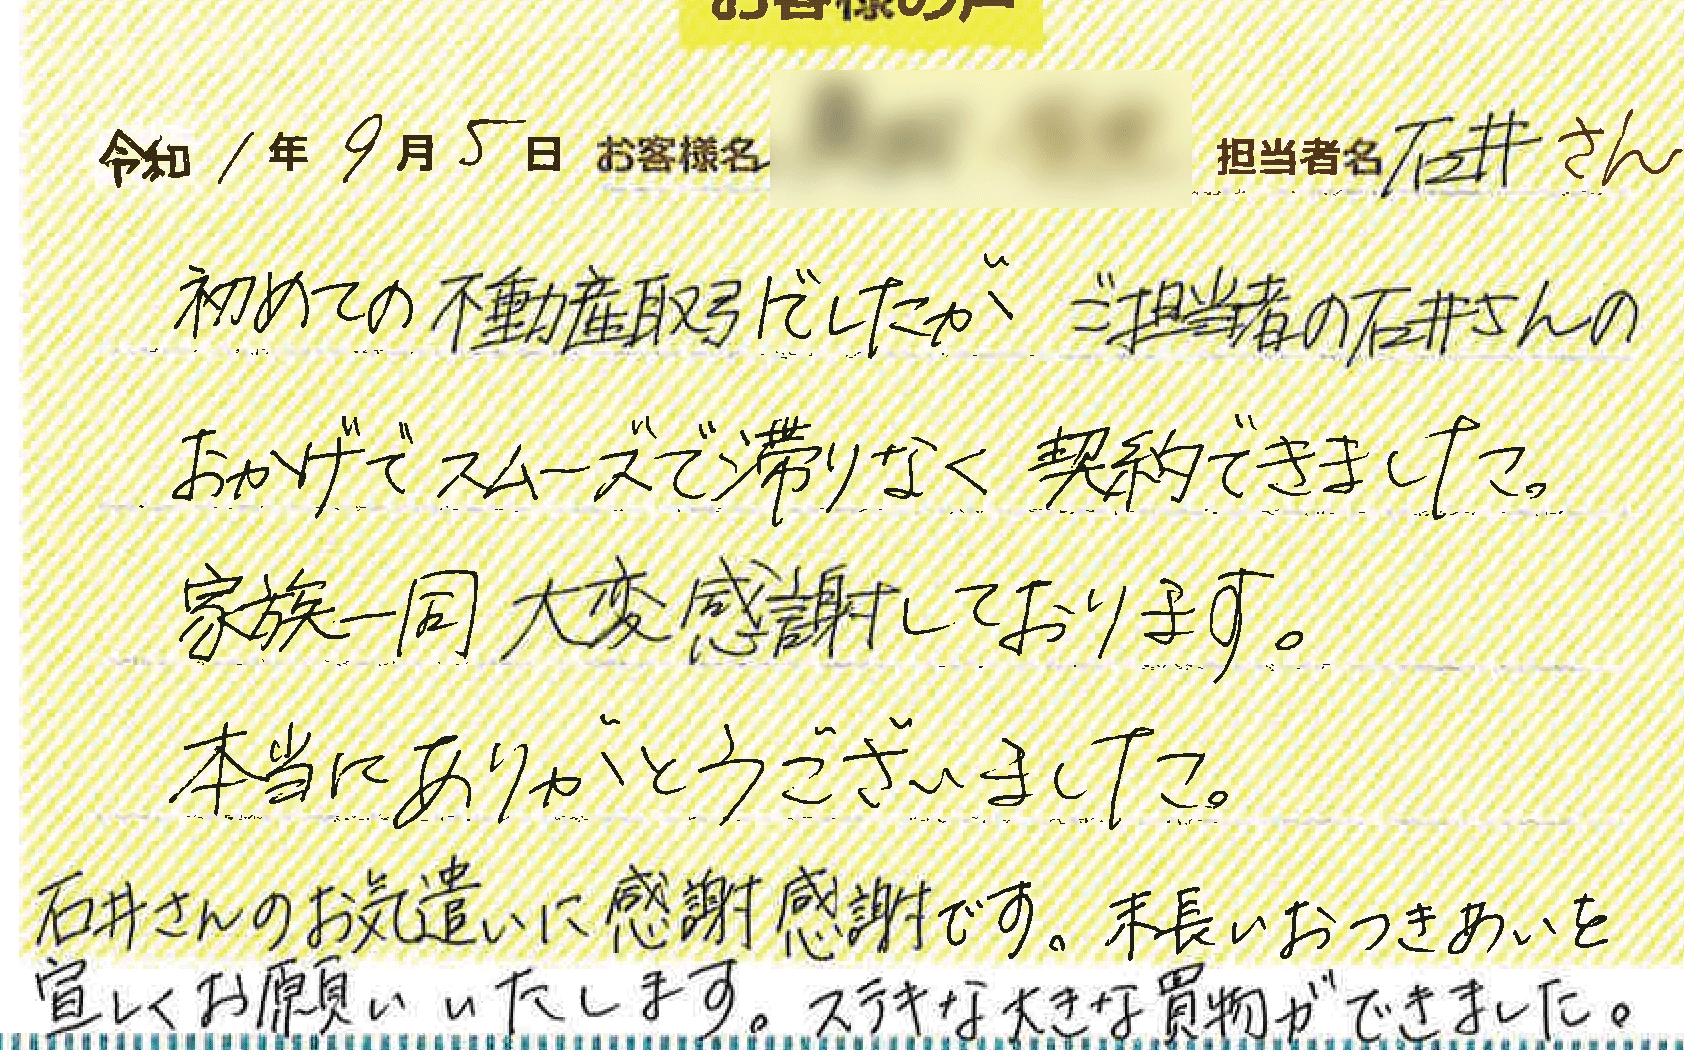 お客様の声
令和1年9月5日 お客様名 担当者名 石井さん
初めての不動産取引でしたが ご担当者の石井さんの
おかげでスムーズで滞りなく 契約できました。
家族一同 大変感謝しております。
本当にありがとうございました。
石井さんのお気遣いに感謝感謝です。末長いおつきあいを
宜しくお願いいたします。ステキな大きな買物ができました。